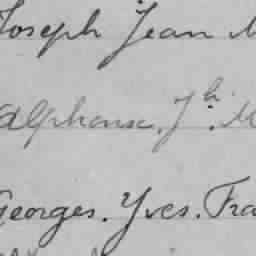 Joseph Jean M
Alphonse. Jh. M
Georges. Yves. Fra